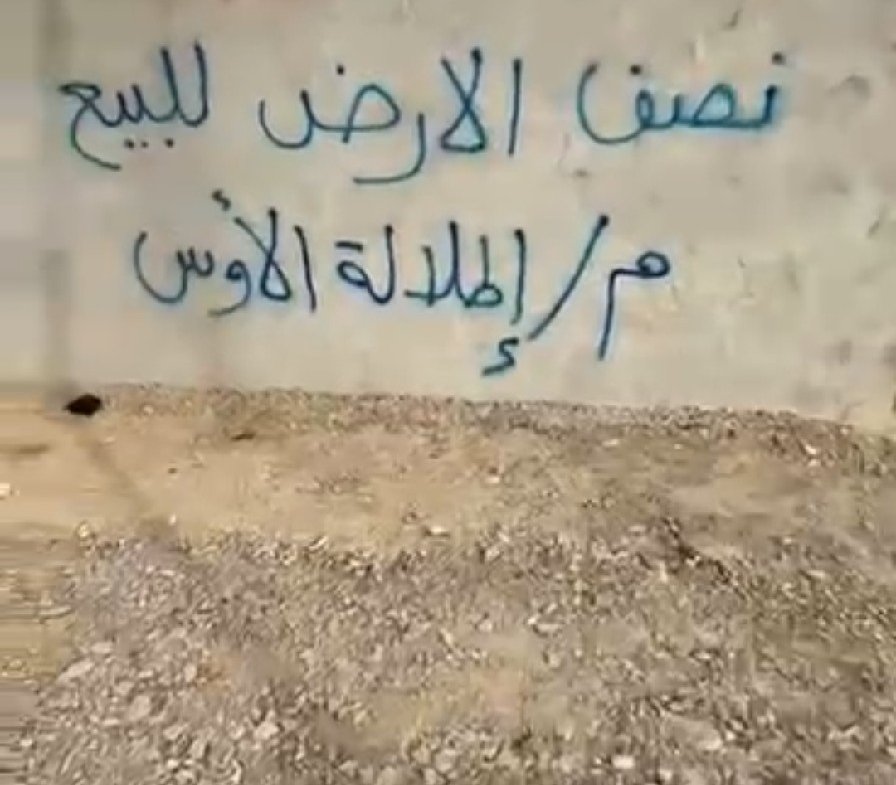 نصف الارض للبيع
م/إطلالة الأوس